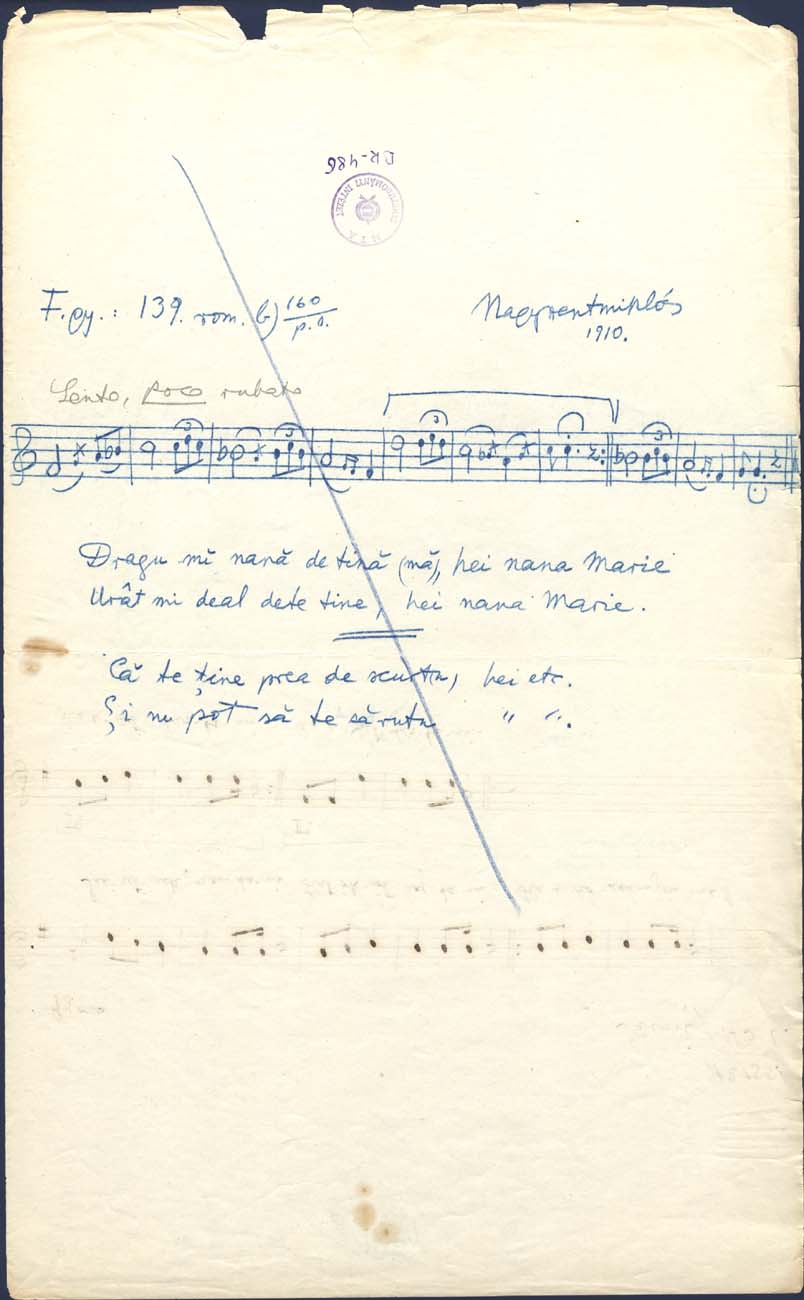 BR-486
M T A
F. gy.: 139. rom. b) 160/p.o.
Nagyszentmiklós
1910.
Lento, poco rubato
3 3 3 3 3
Dragu mi nană de tină (mă), hei nana Marie
Urât mi deal dete tine, hei nana Marie.
Că te ține prea de scurtu, hei etc.
Și nu pot să te sărutu " ".